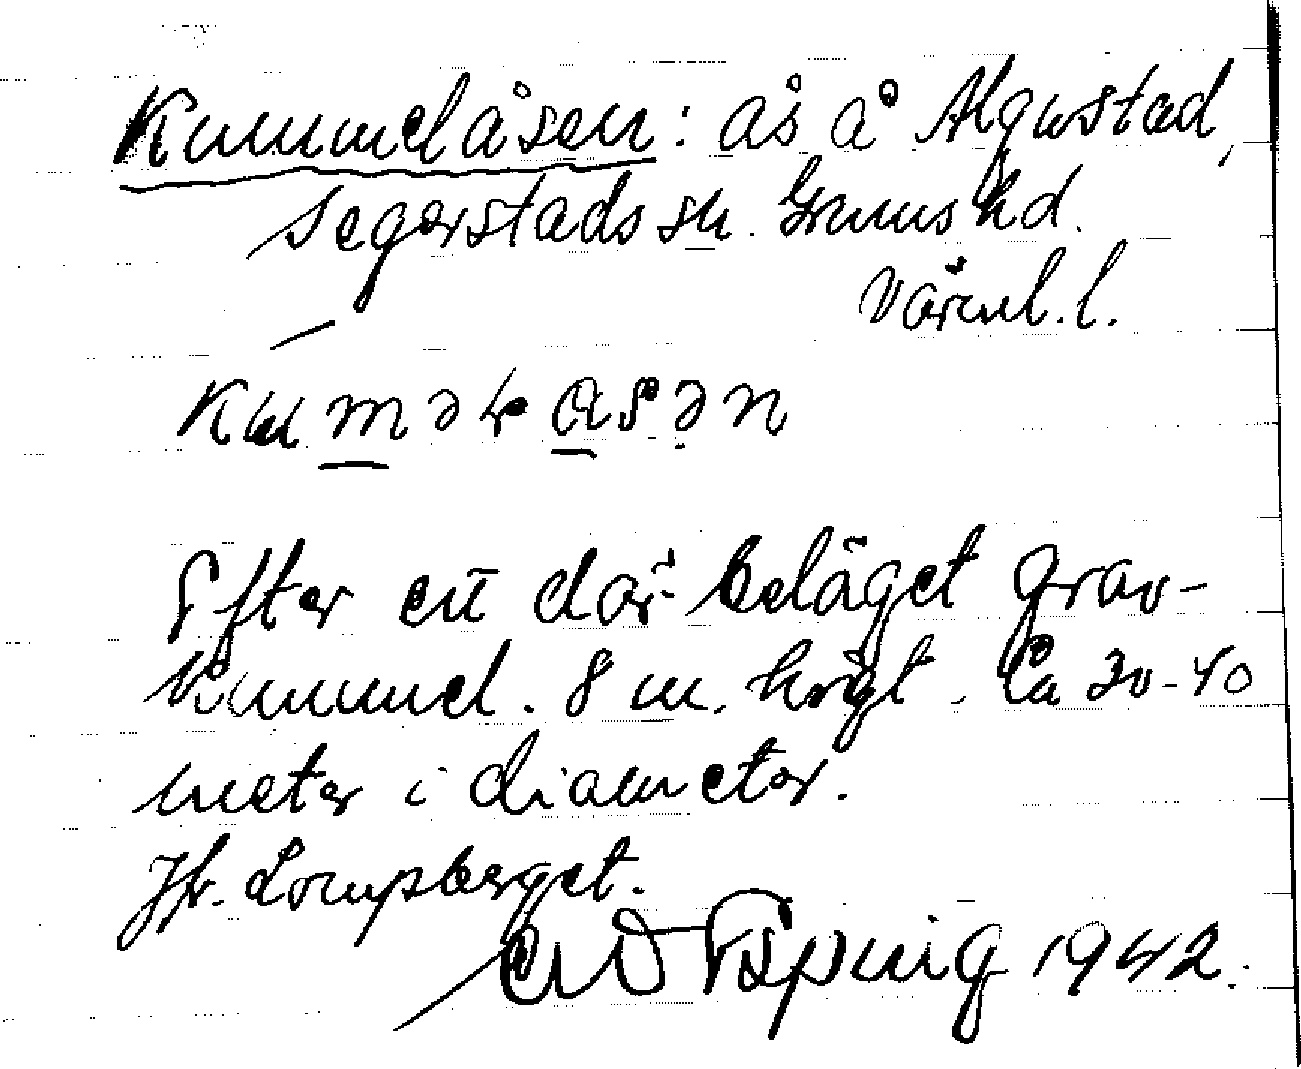 Kummelåsen: ås å Algustad,
Segerstads sn. Grums hd.
Värml. l.
Efter ett där beläget grav-
kummel. 8 m. högt. Ca 30-40
meter i diameter.
Jfr. Lompberget.
1942.